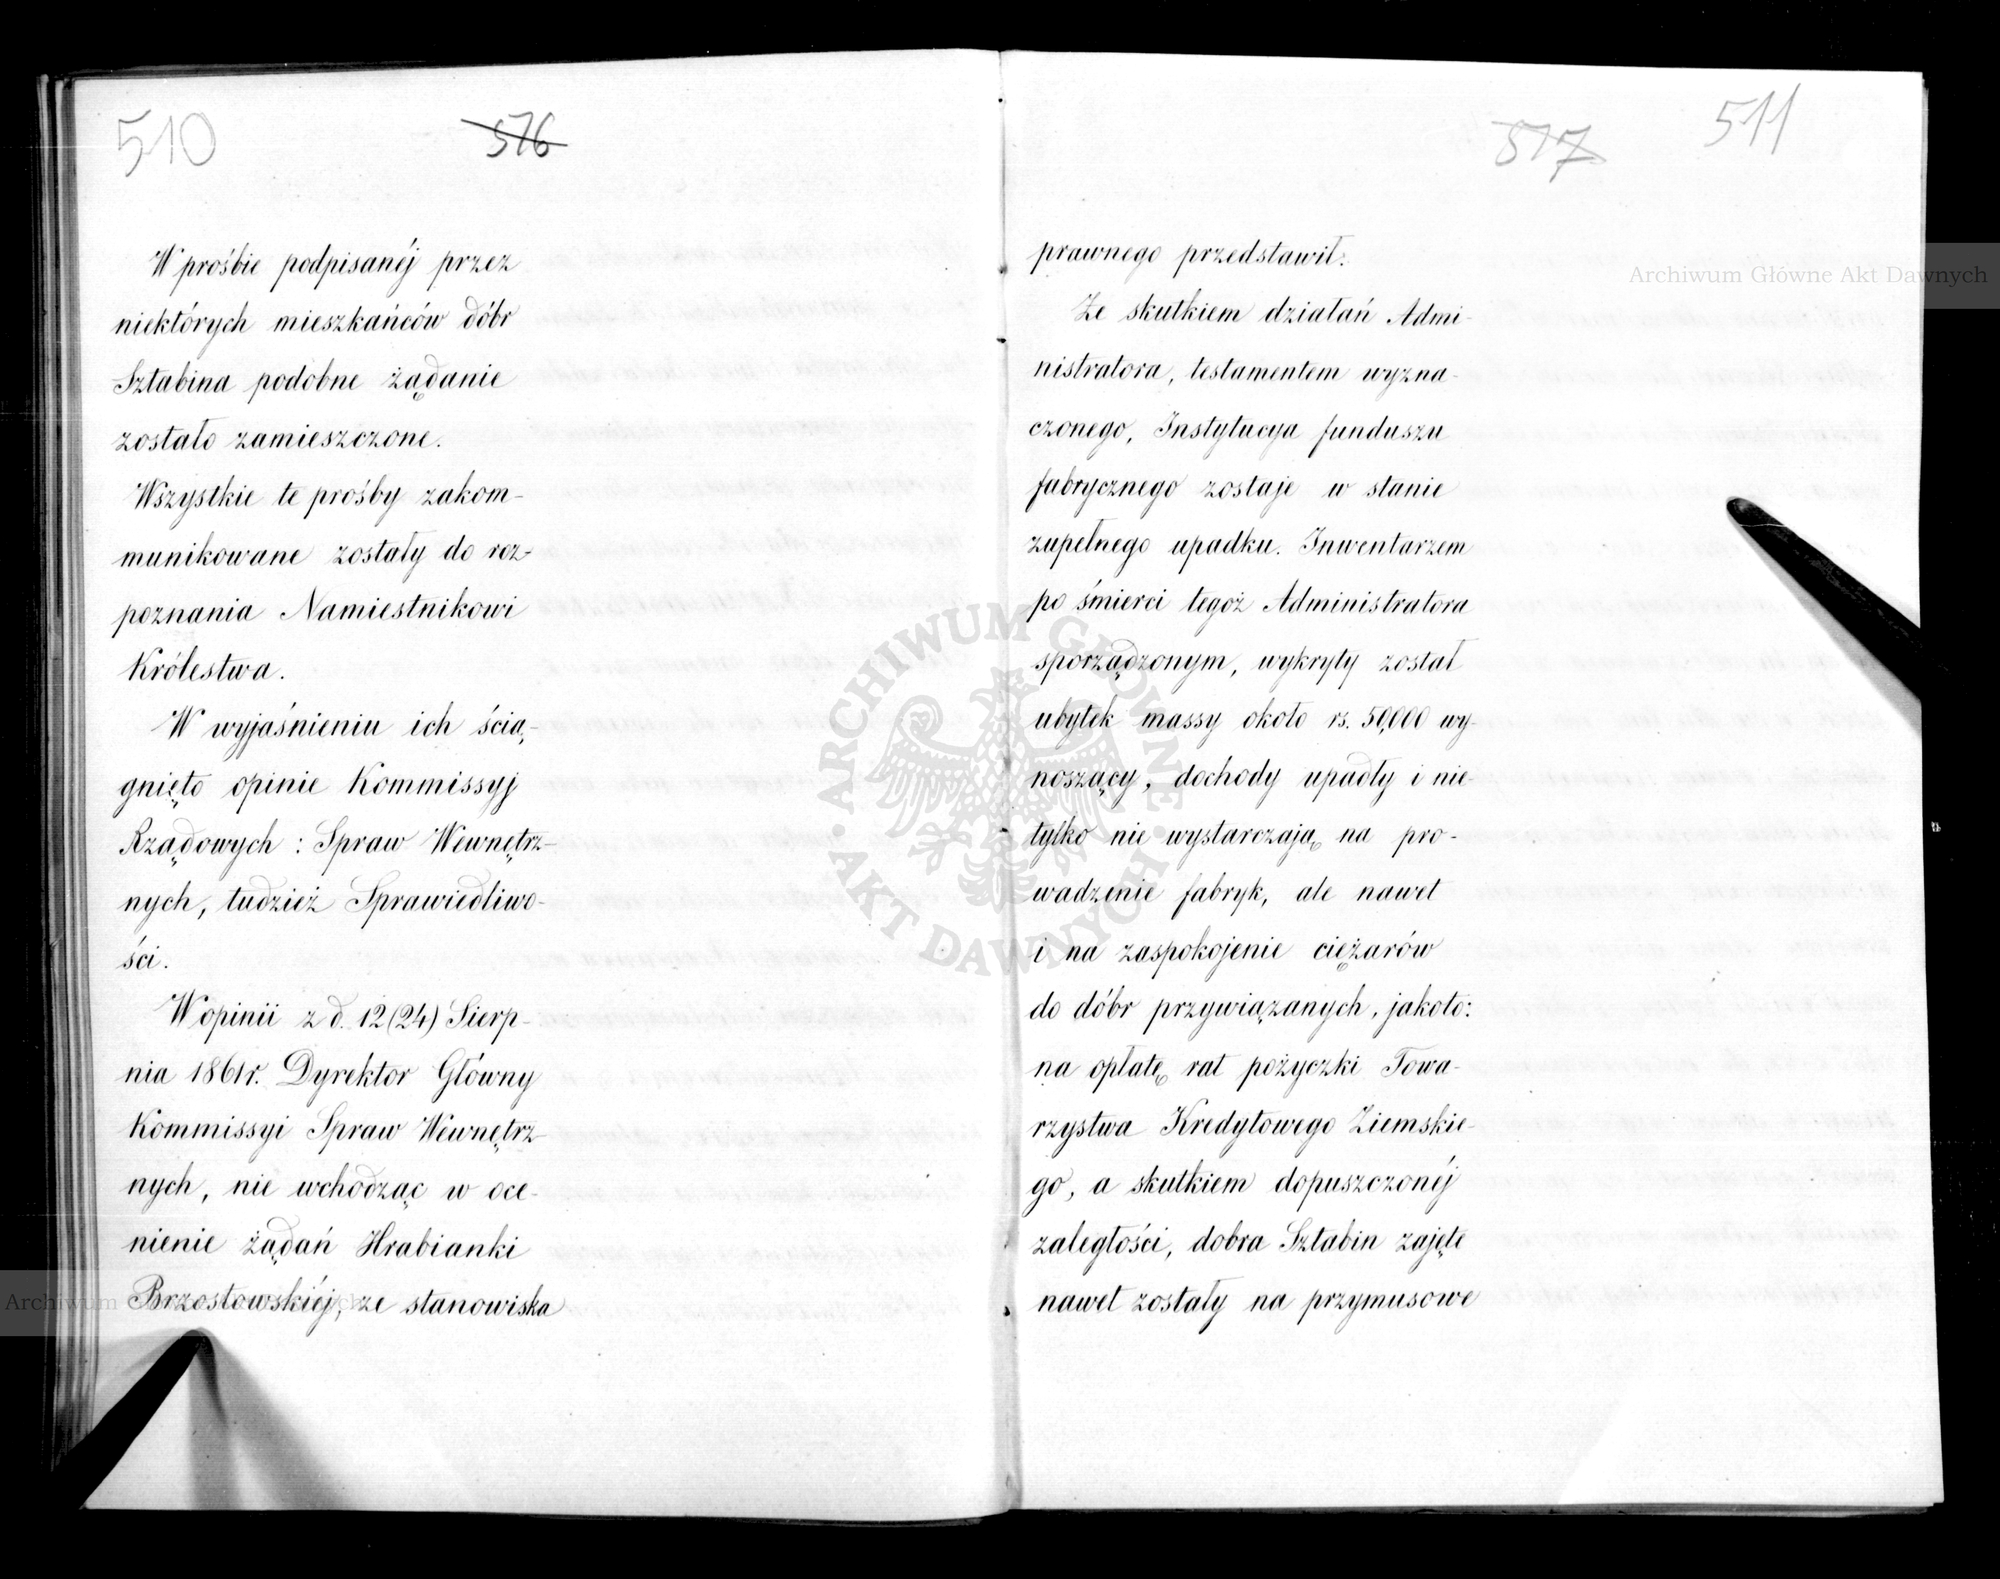 510
576
W prośbie podpisanéj przez
niektórych mieszkańców dóbr
Sztabina podobne żądanie
zostało zamieszczone.
Wszystkie te prośby zakom-
munikowane zostały do roz-
poznania Namiestnikowi
Królestwa.
W wyjaśnieniu ich ścią-
gnięto opinie Kommissyj
Rządowych: Spraw Wewnętrz-
nych, tudzież Sprawiedliwo-
ści.
W opinii z d. 12 (24) Sierp-
nia 1861 r. Dyrektor Główny
Kommissyi Spraw Wewnętrz-
nych, nie wchodząc w oce-
nienie żądań Hrabianki
Brzostowskiéj, ze stanowiska
577
511
prawnego przedstawił:
Że skutkiem działań Admi-
nistratora, testamentem wyzna-
czonego, Instytucya funduszu
fabrycznego zostaje w stanie
zupełnego upadku. Inwentarzem
po śmierci tegoż Administratora
sporządzonym, wykryty został
ubytek massy około rs. 50,000 wy-
noszący, dochody upadły i nie
tylko nie wystarczają na pro-
wadzenie fabryk, ale nawet
i na zaspokojenie ciężarów
do dóbr przywiązanych, jakoto:
na opłatę rat pożyczki Towa-
rzystwa Kredytowego Ziemskie-
go, a skutkiem dopuszczonéj
zaległości, dobra Sztabin zajęte
nawet zostały na przymusowe
Archiwum Główne Akt Dawnych
ARCHIWUM GŁÓWNE
AKT DAWNYCH
Archiwum Główne Akt Dawnych